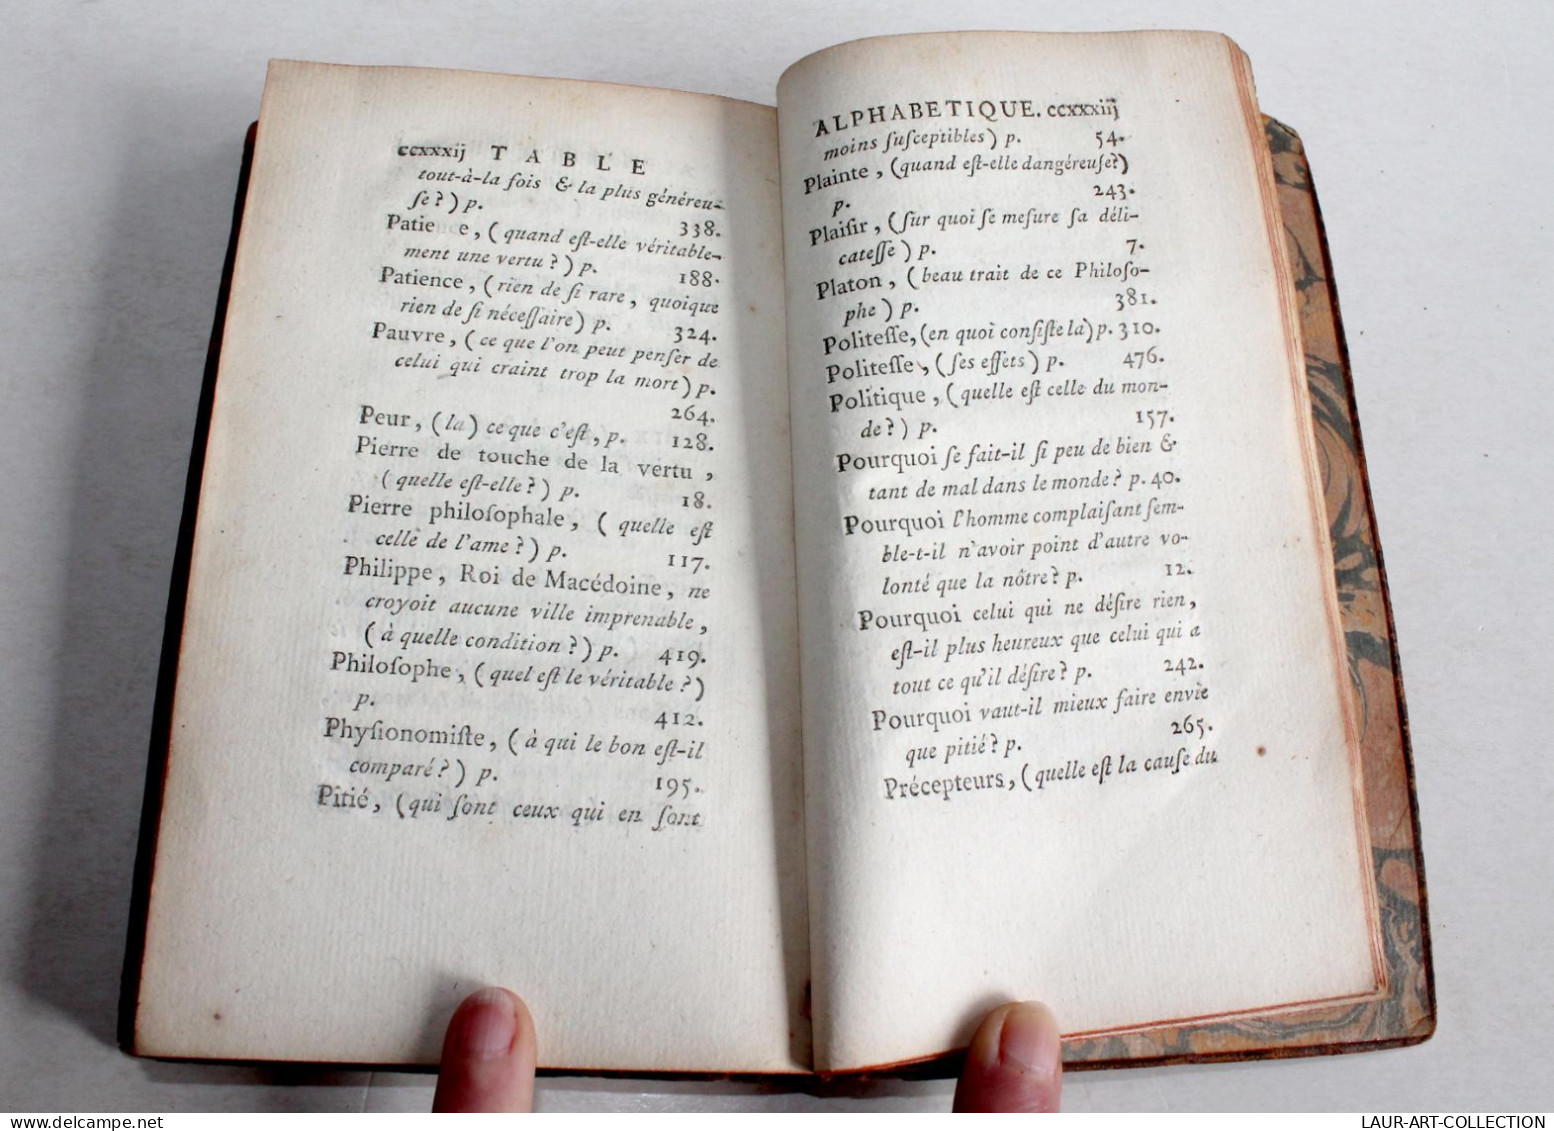 ccxxxij TABLE
tout-à-la fois & la plus généreu-
ſe?) p. 338.
Patie e, (quand eſt-elle véritable-
ment une vertu?) p. 188.
Patience, (rien de ſi rare, quoique
rien de ſi néceſſaire) p. 324.
Pauvre, (ce que l'on peut penſer de
celui qui craint trop la mort) p.
264.
Peur, (la) ce que c'eſt, p. 128.
Pierre de touche de la vertu,
(quelle eſt-elle?) p. 18.
Pierre philoſophale, (quelle eſt
celle de l'ame?) p. 117.
Philippe, Roi de Macédoine, ne
croyoit aucune ville imprenable,
(à quelle condition?) p. 419.
Philoſophe, (quel eſt le véritable?)
p. 412.
Phyſionomiſte, (à qui le bon eſt-il
comparé?) p. 195.
Pitié, (qui ſont ceux qui en ſont
ALPHABETIQUE. ccxxxiij
moins ſuſceptibles) p. 54.
Plainte, (quand eſt-elle dangéreuſe?)
p. 243.
Plaiſir, (ſur quoi ſe meſure ſa déli-
cateſſe) p. 7.
Platon, (beau trait de ce Philoſo-
phe) p. 381.
Politeſſe, (en quoi conſiſte la) p. 310.
Politeſſe, (ſes effets) p. 476.
Politique, (quelle eſt celle du mon-
de?) p. 157.
Pourquoi ſe fait-il ſi peu de bien &
tant de mal dans le monde? p. 40.
Pourquoi l'homme complaiſant ſem-
ble-t-il n'avoir point d'autre vo-
lonté que la nôtre? p. 12.
Pourquoi celui qui ne déſire rien,
eſt-il plus heureux que celui qui a
tout ce qu'il déſire? p. 242.
Pourquoi vaut-il mieux faire envie
que pitié? p. 265.
Précepteurs, (quelle eſt la cauſe du
LAUR-ART-COLLECTION